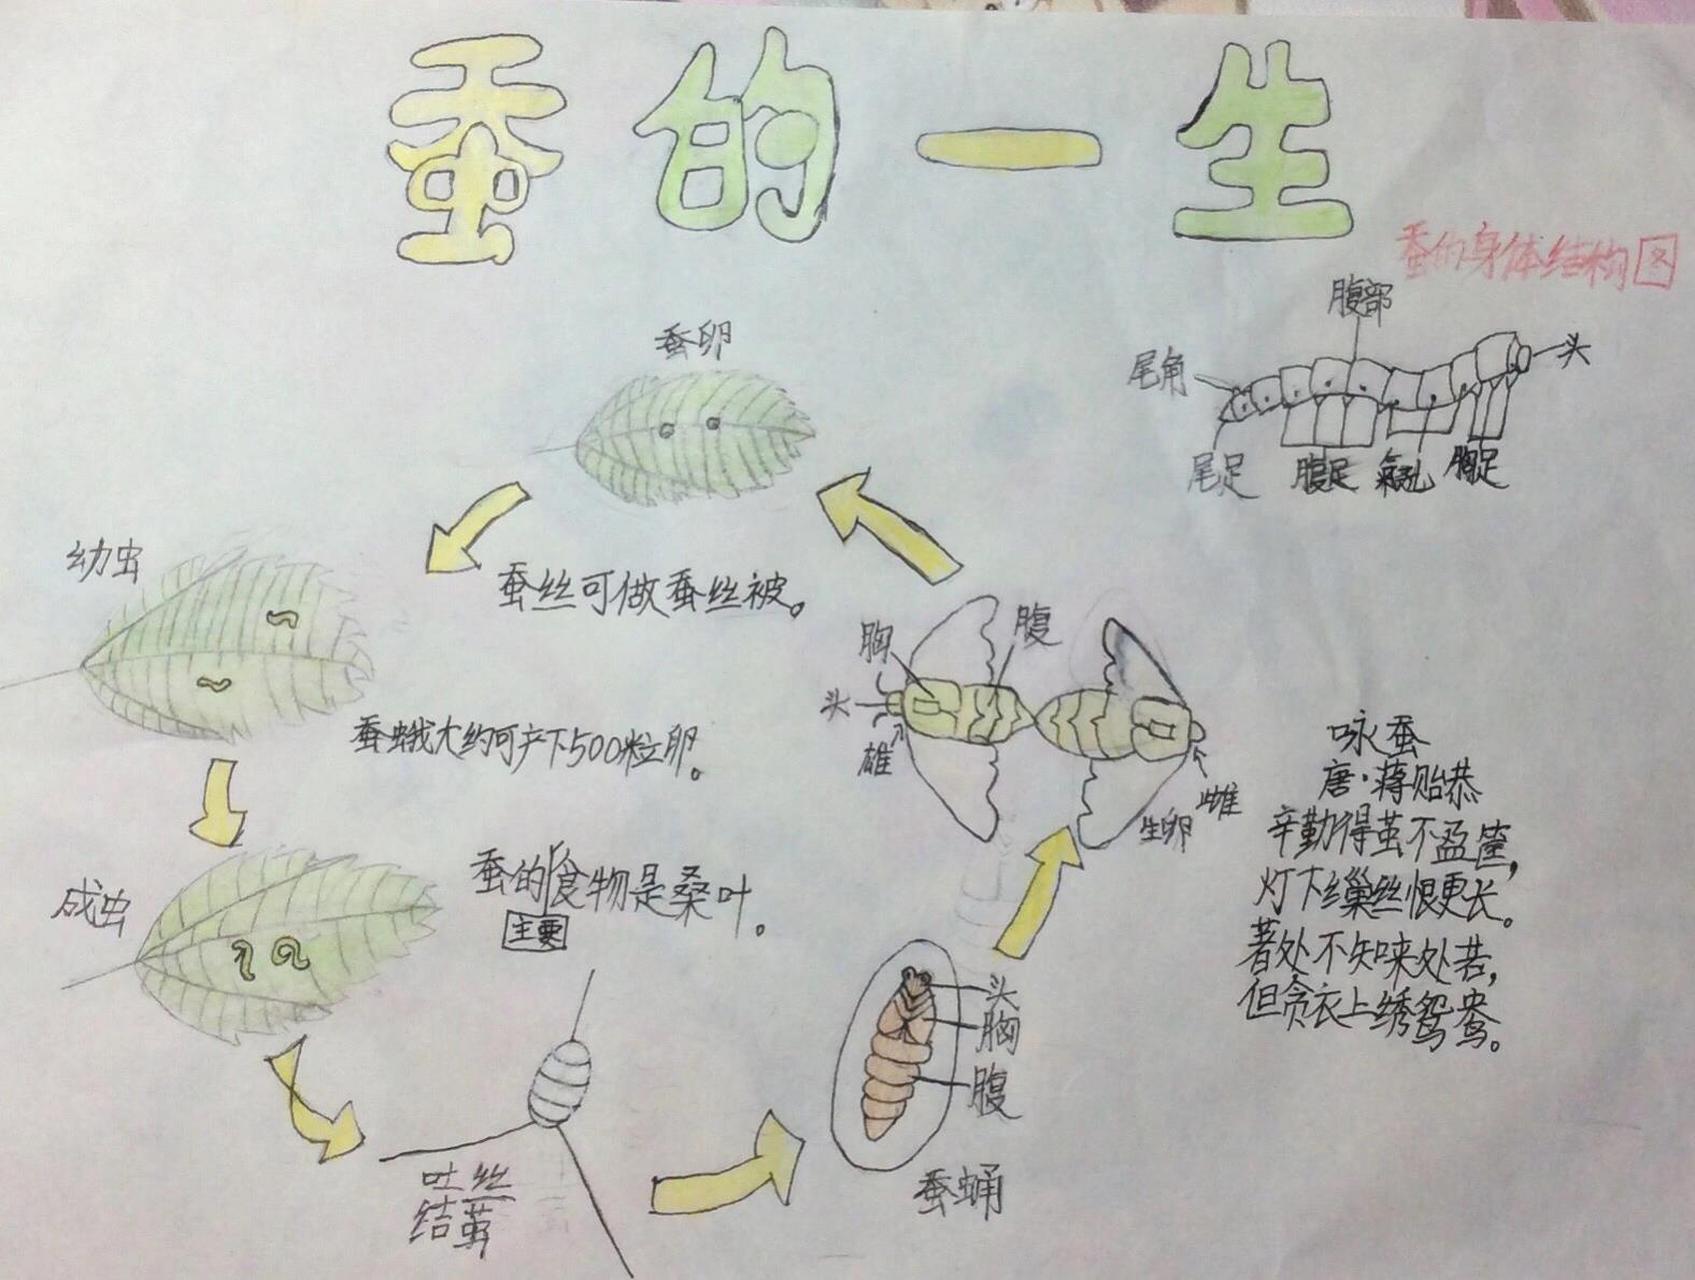 蚕的一生
蚕的身体结构图
腹部
头
尾角
尾足
腹足
氣孔
胸足
蚕卵
幼虫
蚕丝可做蚕丝被。
蚕蛾大约可产下500粒卵。
成虫
蚕的食物是桑叶。
主要
吐丝
结茧
头
胸
腹
蚕蛹
胸
腹
头
雄
雌
生卵
咏蚕
唐·蒋贻恭
辛勤得茧不盈筐,
灯下缫丝恨更长。
著处不知来处苦,
但贪衣上绣鸳鸯。